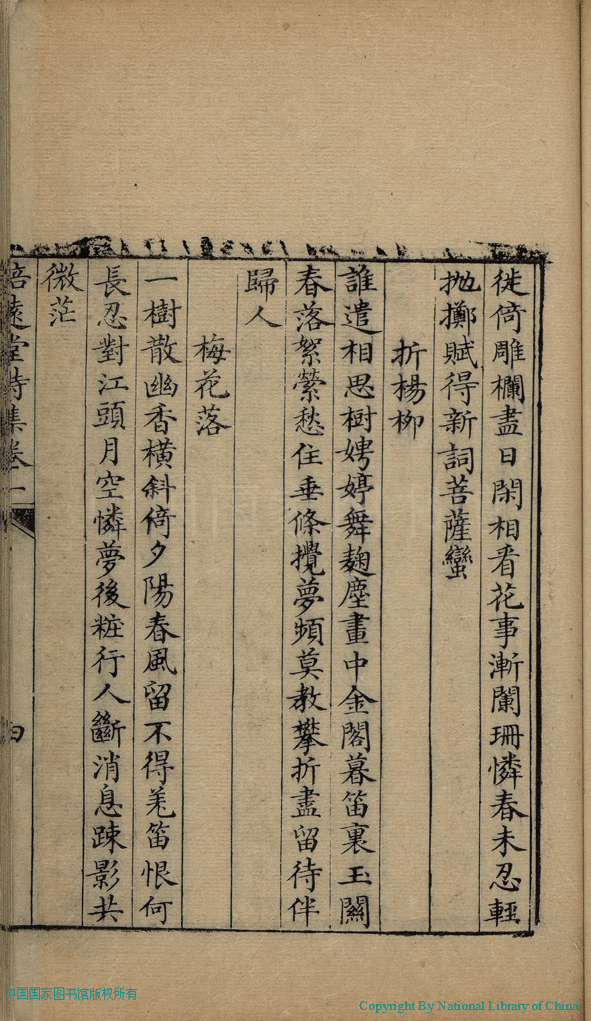 徙倚雕欄盡日閑相看花事漸闌珊憐春未忍輕
抛擲賦得新詞菩薩蠻
折楊柳
誰遣相思樹娉婷舞麴塵畫中金閣暮笛裏玉關
春落絮縈愁住垂條攪夢頻莫教攀折盡留待伴
歸人
梅花落
一樹散幽香橫斜倚夕陽春風留不得羌笛恨何
長忍對江頭月空憐夢後粧行人斷消息踈影共
微茫
培遠堂詩集卷一
四
中国国家图书馆版权所有
Copyright By National Library of China